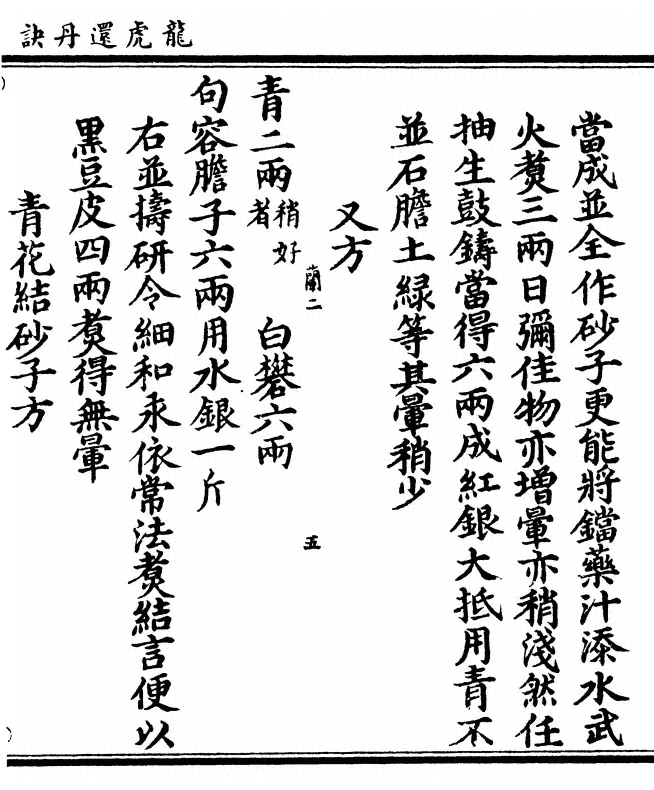 龍虎還丹訣
當成並全作砂子更能將鐺藥汁添水武
火煑三兩日彌佳物亦增暈亦稍淺然任
抽生鼓鑄當得六兩成紅銀大抵用青不
並石膽土綠等其暈稍少
又方
蘭二
五
青二兩稍好者
白礬六兩
句容膽子六兩用水銀一斤
右並擣研令細和汞依常法煑結言便以
黑豆皮四兩煑得無暈
青花結砂子方